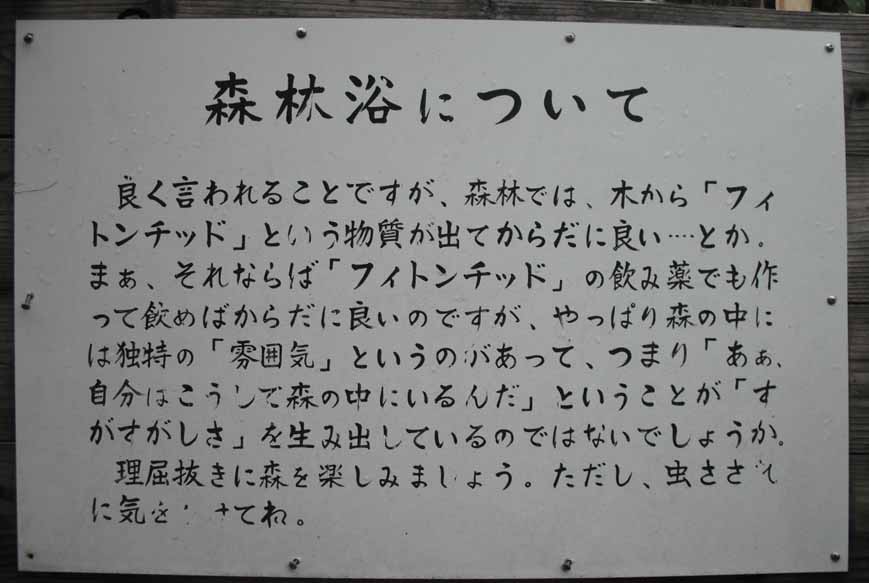 森林浴について
良く言われることですが、森林では、木から「フィ
トンチッド」という物質が出てからだに良い…とか。
まぁ、それならば「フィトンチッド」の飲み薬でも作
って飲めばからだに良いのですが、やっぱり森の中に
は独特の「雰囲気」というのがあって、つまり「あぁ、
自分はこうして森の中にいるんだ」ということが「す
がすがしさ」を生み出しているのではないでしょうか。
理屈抜きに森を楽しみましょう。ただし、虫ささ
に気を てね。